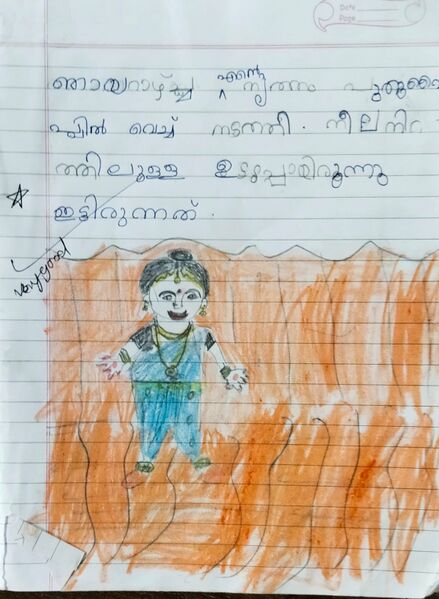 Date
Page
ഞായറാഴ്ച്ച എന്റെ നൃത്തം പുതുവൈ
പ്പിൽ വെച്ച് നടന്നു. നീലനിറ
ത്തിലുള്ള ഉടുപ്പായിരുന്നു
ഇട്ടിരുന്നത്.